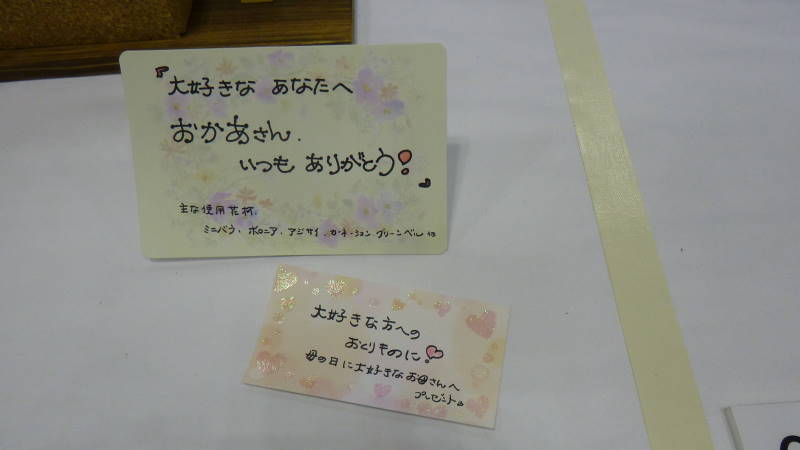 『大好きな あなたへ
おかあさん.
いつも ありがとう!』
主な使用花材.
ミニバラ、ボロニア、アジサイ、カーネーション グリーンベル 他
大好きな方への
おくりものに!
母の日に大好きなお母さんへ
プレゼント♪